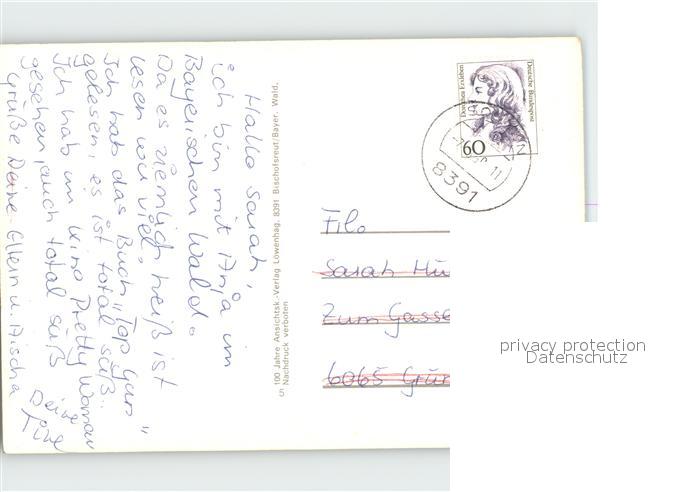 Hallo Sarah,
ich bin mit Anja im
Bayerischen Wald.
Da es ziemlich heiß ist
lesen wir viel.
Ich hab das Buch "Top Gun"
gelesen, es ist total süß.
Ich hab im Kino Pretty Woman
gesehen, auch total süß
Grüße Deine Eltern u. Mischa
Deine
Tine
5 100 Jahre Ansichtsk.-Verlag Löwenhag, 8391 Bischofsreut/Bayer. Wald.
Nachdruck verboten
Dorothea Erxleben
Deutsche Bundespost
60
11
8391
Frl.
Sarah
Zum
6065
privacy protection
Datenschutz